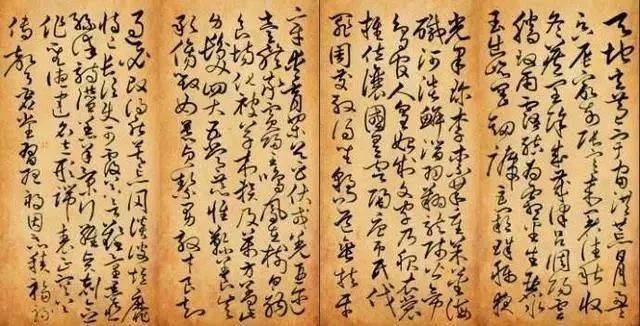 天地玄黃宇宙洪荒日月盈
昃辰宿列張寒來暑往秋收
冬藏閏餘成歲律呂調陽雲
騰致雨露結為霜金生麗水
玉出崑岡劍號巨闕珠稱夜
光果珍李柰菜重芥薑海
鹹河淡鱗潛羽翔龍師火帝
鳥官人皇始制文字乃服衣裳
推位讓國有虞陶唐弔民伐
罪周發殷湯坐朝問道垂拱平
章愛育黎首臣伏戎羌遐邇
壹體率賓歸王鳴鳳在樹白駒
食場化被草木賴及萬方蓋此
身髮四大五常恭惟鞠養豈
敢毀傷女慕貞潔男效才良知
過必改得能莫忘罔談彼短靡
恃己長信使可覆器欲難量墨悲
絲染詩讚羔羊景行維賢克念
作聖德建名立形端表正空谷
傳聲虛堂習聽禍因惡積福緣